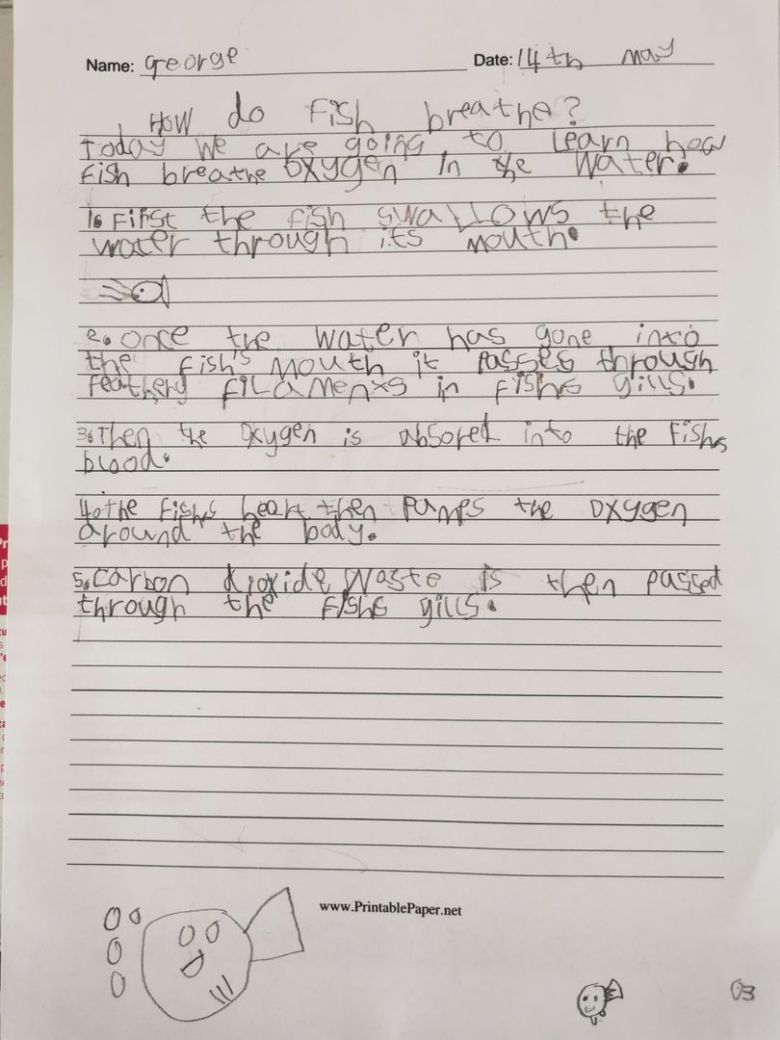 Name: George
Date: 14th may
How do Fish breathe?
Today we are going to Learn how
fish breathe oxygen in the water.
1. First the fish swallows the
water through its mouth.
2. once the water has gone into
the fish's mouth it passes through
feathery filaments in fishs gills.
3. Then the oxygen is absored into the fishs
blood.
4. the fishs heart then pumps the oxygen
around the body.
5. carbon dioxide waste is then passed
through the fishs gills.
www.PrintablePaper.net